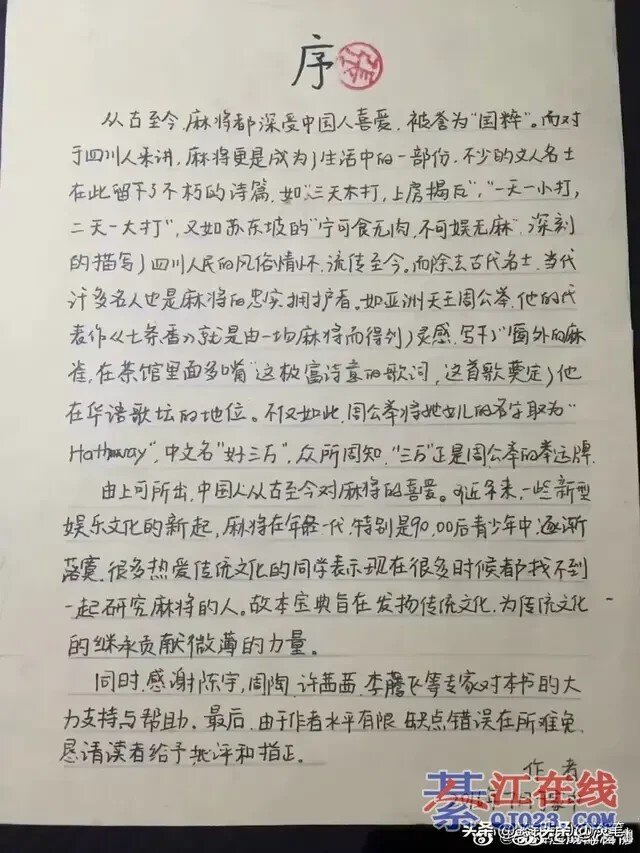 序
从古至今,麻将都深受中国人喜爱,被誉为"国粹"。而对
于四川人来讲,麻将更是成为了生活中的一部份,不少的文人名士
在此留下了不朽的诗篇,如"三天不打,上房揭瓦","一天一小打,
二天一大打",又如苏东坡的"宁可食无肉,不可娱无麻",深刻
的描写了四川人民的风俗情怀,流传至今。而除去古代名士,当代
许多名人也是麻将的忠实拥护者。如亚洲天王周公举,他的代
表作《七条香》就是由一场麻将而得到了灵感,写下了"窗外的麻
雀,在茶馆里面多嘴"这极富诗意的歌词,这首歌奠定了他
在华语歌坛的地位。不仅如此,周公举将她女儿的名字取为"
Hathaway",中文名"好三万",众所周知,"三万"正是周公举的幸运牌.
由上可所出,中国人从古至今对麻将的喜爱。可近年来,一些新型
娱乐文化的新起,麻将在年轻一代,特别是90,00后青少年中,逐渐
落寞,很多热爱传统文化的同学表示现在很多时候都找不到
一起研究麻将的人。故本宝典旨在发扬传统文化,为传统文化
的继承贡献微薄的力量。
同时,感谢陈宇,周陶,许茜茜,李藤飞等专家对本书的大
力支持与帮助。最后,由于作者水平有限,缺点错误在所难免,
恳请读者给予批评和指正。
作者
綦江在线
QJ023.com
头条